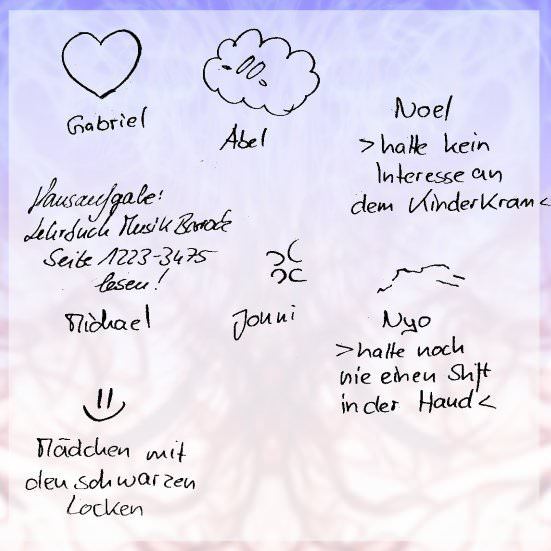 Gabriel
Abel
Noel
>hatte kein
Interesse an
dem Kinderkram<
Hausaufgabe:
Lehrbuch Musik Barock
Seite 1223-3475
lesen!
Michael
Jonni
Nyo
>hatte noch
nie einen Stift
in der Hand<
Mädchen mit
den schwarzen
Locken